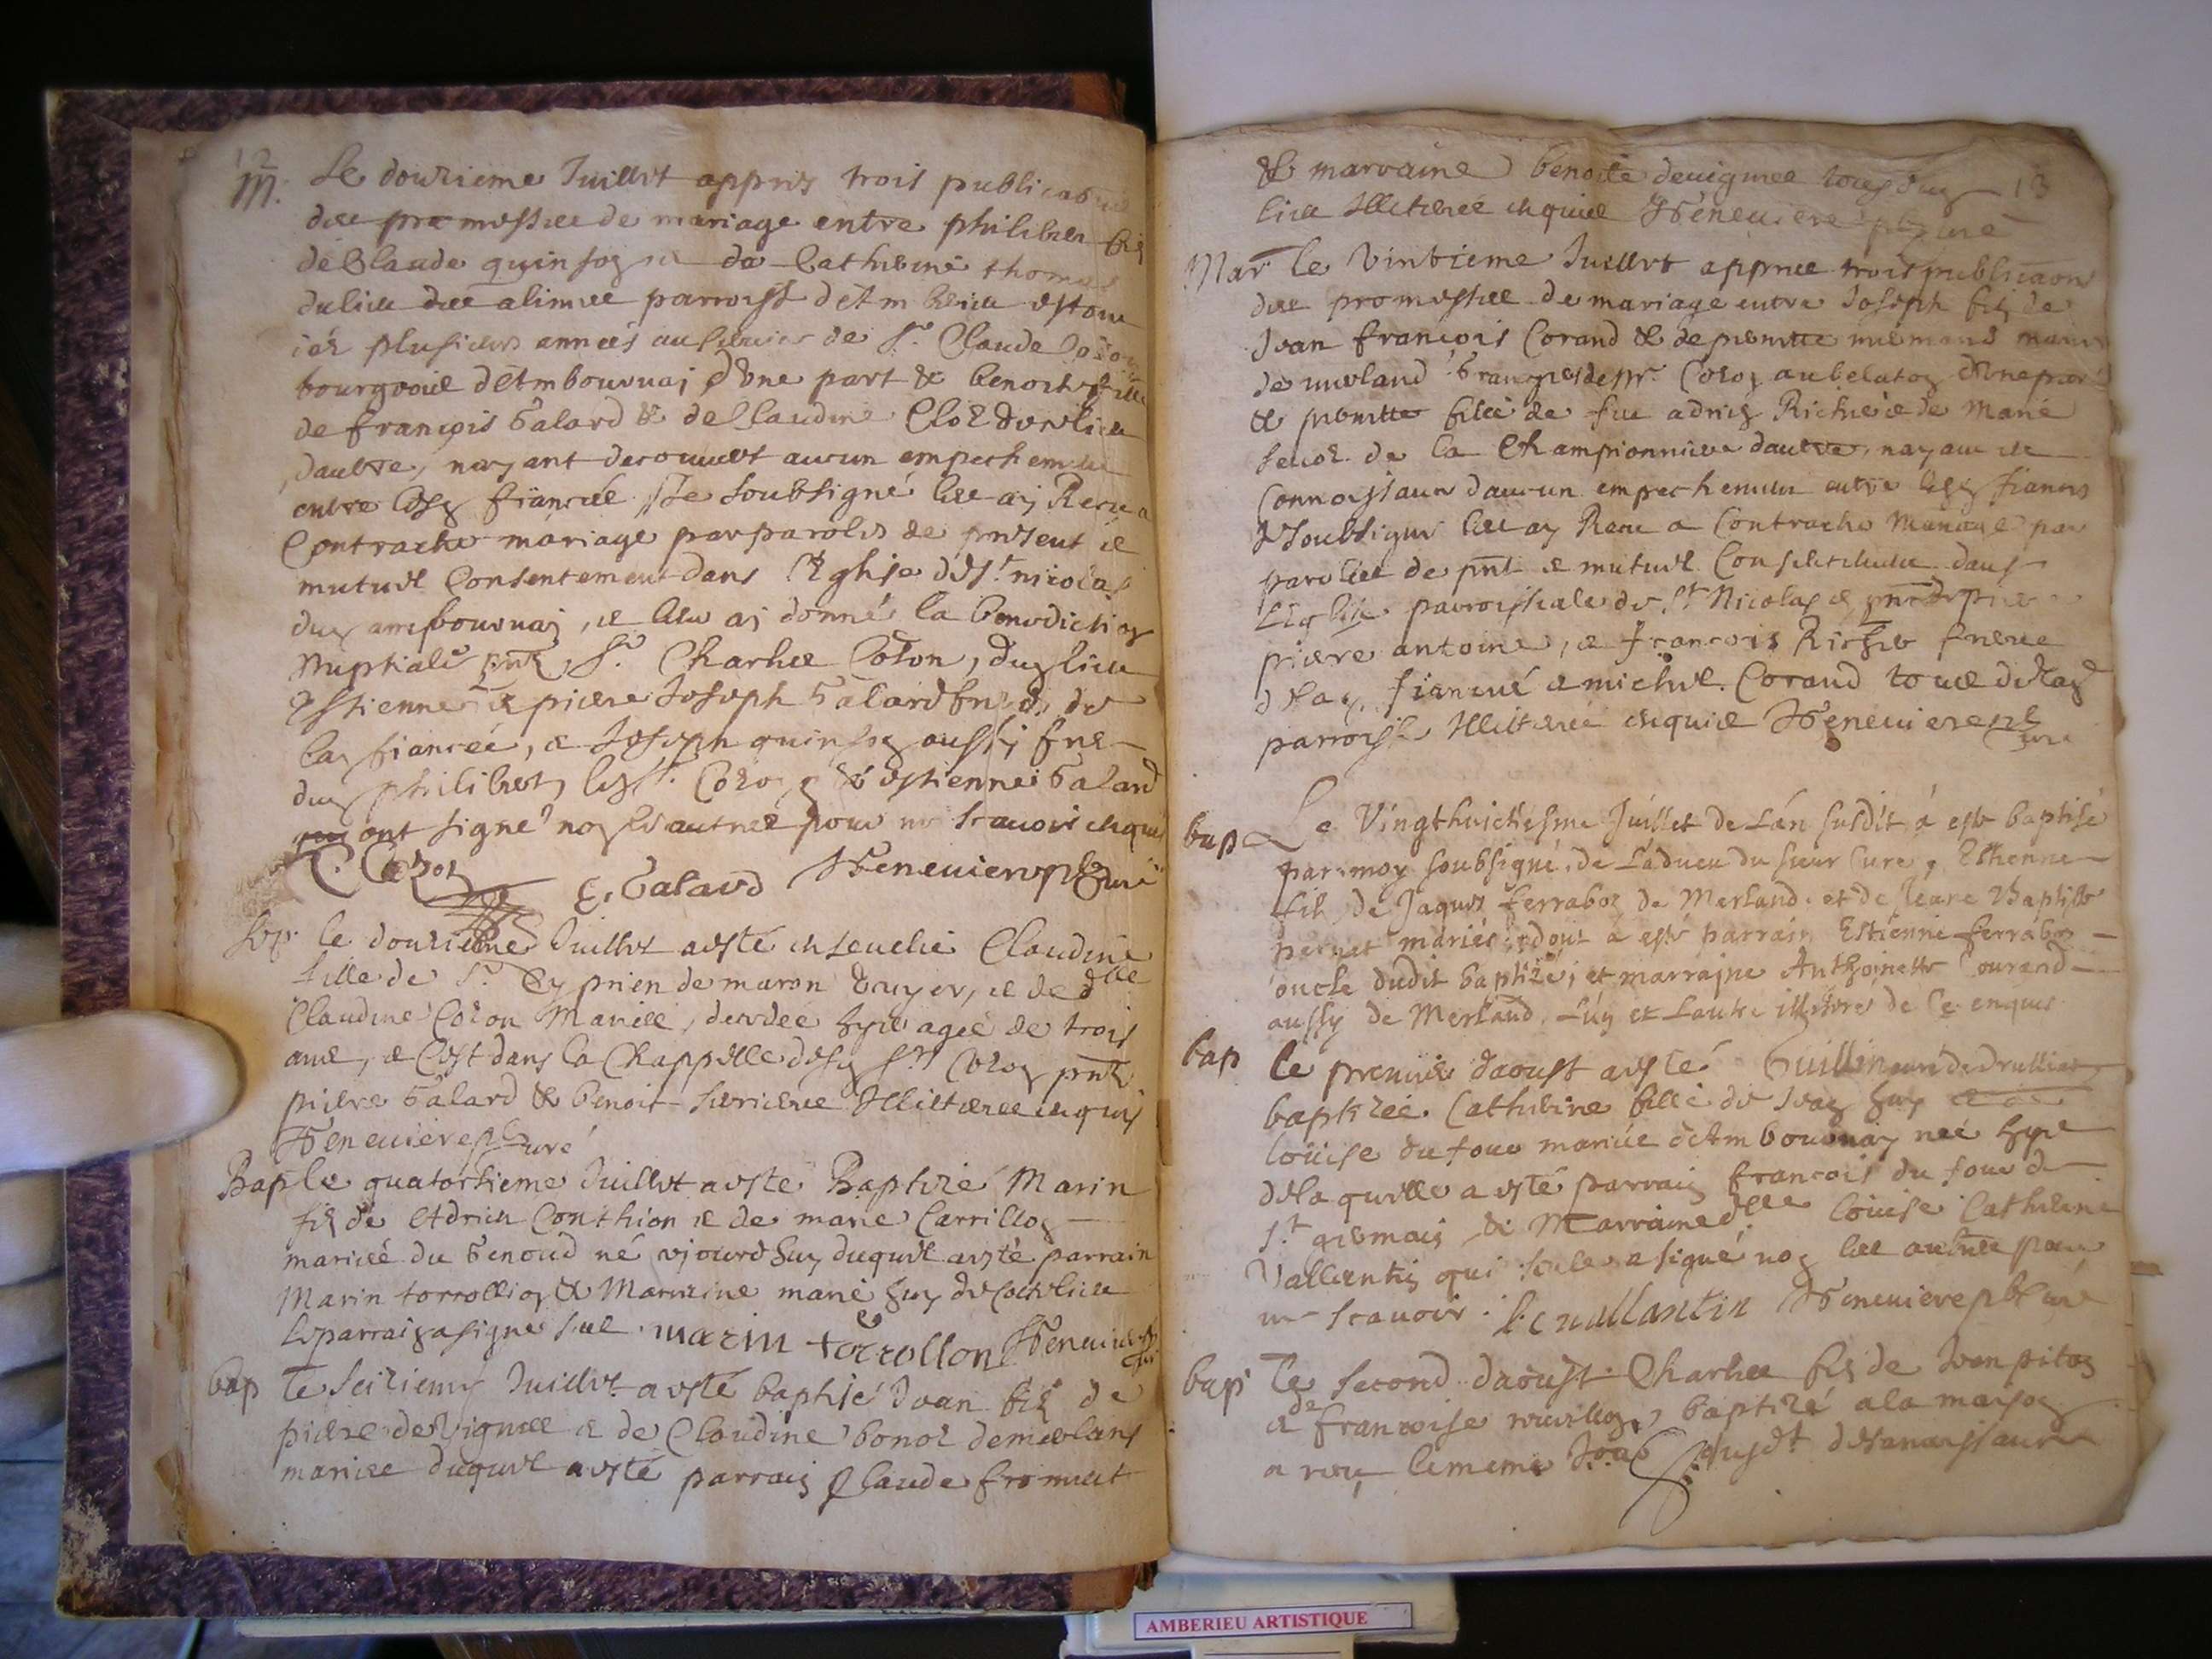 12
M. Le douzieme Juillet appres trois publica
des promesses de mariage entre philiber fils
de Claude quinson & de Catherine thomas
du lieu des alimes parroisse d'Amberieu
plusieurs années au service de Sr. Claude
bourgeois d'Ambournai d'Une part & benoite fille
de françois Galard & de Claudine Cloz dud lieu
daultre, nayant decouvert aucun empechement
entre lesd fiancés Je soubsigné les ay Receu a
Contracter mariage par paroles de present &
mutuel Consentement dans l'Eglise de St. nicolas
dud ambournay, & leur ai donné la benediction
Nuptiale pnts, Sr. Charles Cozon, dud lieu
Estienne & pierre Joseph Galard de
lad fiancée, & Joseph quinson aussy
dud philibert, led Sr. Cozon & estienne Galard
ont signé non les autres pour ne scavoir enquis
C. Cozon E. Galard Genevier pbr Curé
Sep. le douzieme Juillet a esté ensevelie Claudine
fille de Sr. Cyprien de maron & de dlle
Claudine Cozon Mariés, decedée hyer agée de trois
ans, & C'est dans la Chappelle desd Srs Cozon pnts
pierre Galard & benoit Illiterés enquis
Genevier pbr Curé
Bap le quatorzieme Juillet a esté Baptizé Marin
fils de Adrien Conthion & de marie Carrillon
mariés du Genoud né ajourdhuy duquel a esté parrain
Marin torrollion & Marraine marie huy dud lieu
le parrain a signé seul. marin torrollon Genevier
bap Le seizieme Juillet a esté baptisé Jean fils de
pierre devignes & de Claudine bonoz de merlans
maries duquel a esté parrain Claude froment
& marraine benoite devignes tous dud 13
lieu Illiterés enquis Genevier pbr Curé
Mar le Vintieme Juillet appres trois publicaons
des promesses de mariage entre Joseph fils de
Jean françois Corand & de pernette mariés
de merland Granger de Mr. Cozon d'Une part
& pernette fille de feu adrien Richer & de Marie
de la Championniere daultre, nayant eu
Connoissance daucun empechement entre lesd fiancés
Je soubsigné les ay Receu a Contracter Mariage par
paroles de pnt & mutuel Consentement dans
L'Eglise parroissiale de St Nicolas
pierre antoine, & françois Richer freres
de lad fiancée & michel Corand tous de lad
parroisse Illiterés enquis Genevier pbr Curé
bap Le Vingthuictiesme Juillet de L'an susdit a esté baptisé
par moy soubsigné, de L'adveu du sieur Curé, Estienne
fils de Jaques ferraboz de Merland, et de Jeane Baptiste
pernet mariés, dont a esté parrain Estienne ferraboz
oncle dudit baptizé; et marrajne Anthoinette Courand
aussy de Merland, L'un et Lautre illiterés de Ce enquis
Guillin curé de druilliat
bap le premier daoust a esté
baptizée Catherine fille de Jean huy & de
louise du four mariés d'Ambournay née hyer
de laquelle a esté parrain françois du four de
St germain & Marraine dlle louise Catherine
Vallentin qui seule a signé non les aultres pour
ne scavoir. l. c vallantin Genevier pbr Curé
bap Le second daoust Charles fils de Jean piton
& de francoise rouvillon, baptizé a la maison
a receu le meme Jour susdt de sa naissance
AMBERIEU ARTISTIQUE